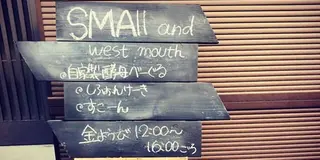 SMAll and
west mouth
◎自家製酵母べーぐる
◎しふぉんけーき
◎すこーん
金ようび 12:00〜
16:00ごろ